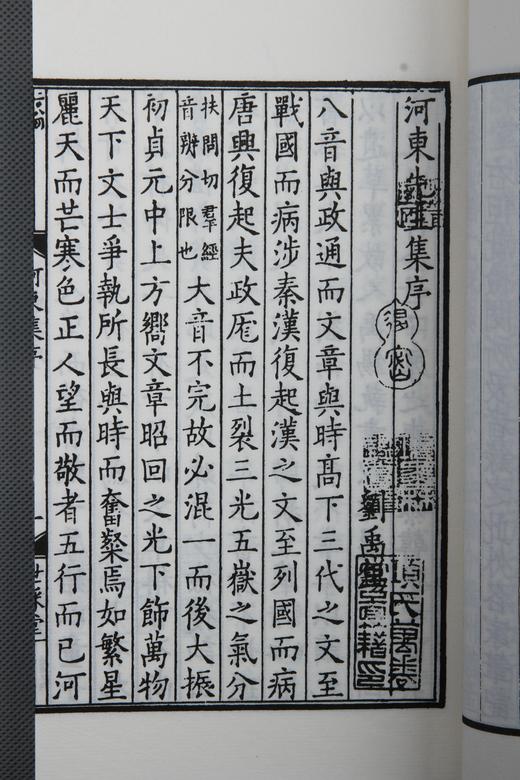 河東先生集序
劉禹錫
八音與政通而文章與時髙下三代之文至
戰國而病涉秦漢復起漢之文至列國而病
唐興復起夫政厖而土裂三光五嶽之氣分
扶問切羣經
音辨分限也
大音不完故必混一而後大振
初貞元中上方嚮文章昭回之光下飾萬物
天下文士爭執所長與時而奮粲焉如繁星
麗天而芒寒色正人望而敬者五行而已河
河東集序
世綵堂
項氏萬卷